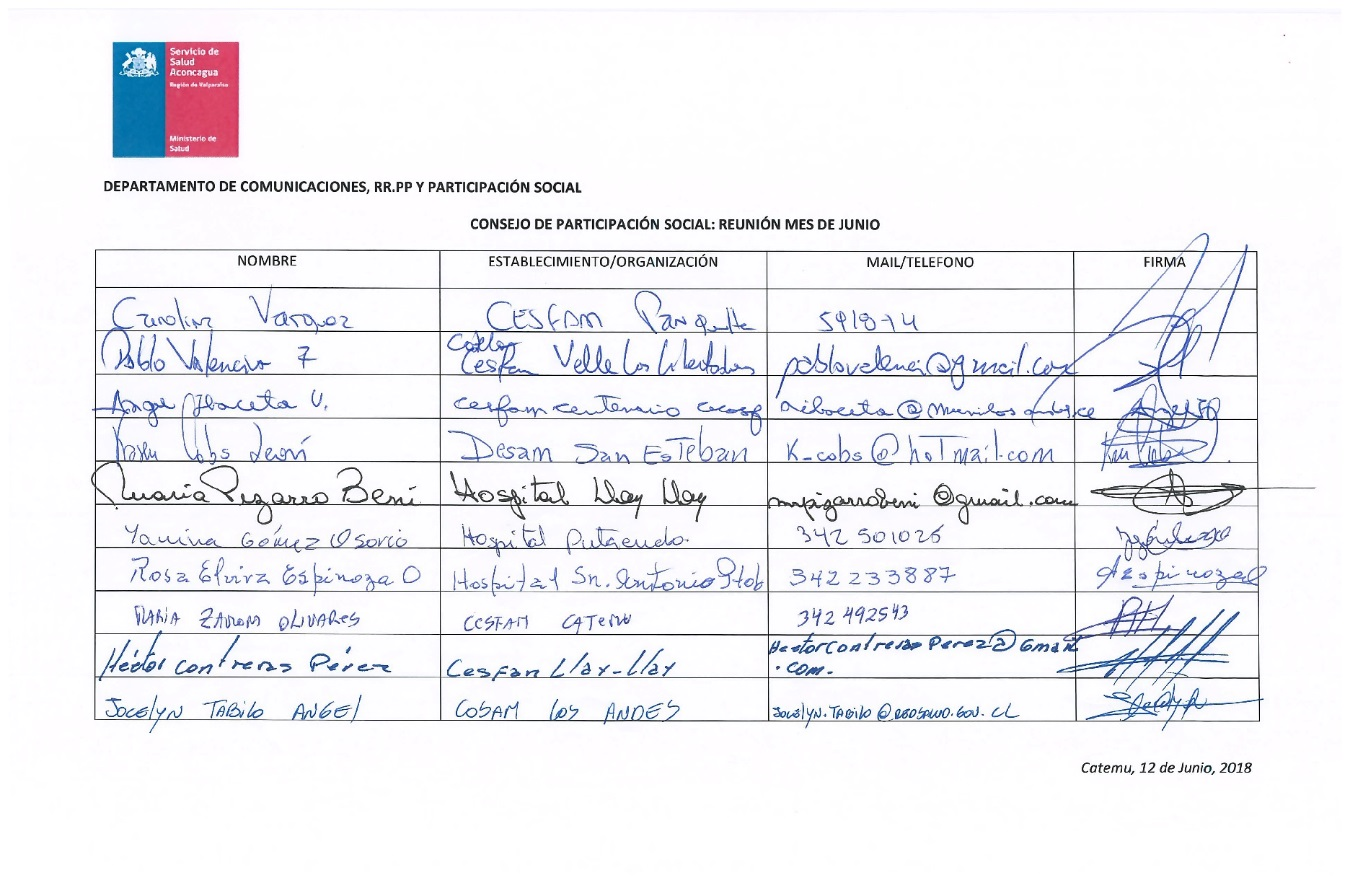 Servicio de
Salud
Aconcagua
Región de Valparaíso
Ministerio de
Salud
DEPARTAMENTO DE COMUNICACIONES, RR.PP Y PARTICIPACIÓN SOCIAL
CONSEJO DE PARTICIPACIÓN SOCIAL: REUNIÓN MES DE JUNIO
NOMBRE ESTABLECIMIENTO/ORGANIZACIÓN MAIL/TELEFONO FIRMA
Carolina Vasquez CESFAM
Pablo Valencia Cesfam Valle Los Libertadores
Angel V. cesfam centenario
Cobs León Desam San Esteban K_cobs@hotmail.com
Maria Pizarro Beni Hospital Llay Llay mpizarrobeni@gmail.com
Yanina Gómez Osorio Hospital Putaendo. 342 501026
Rosa Elvira Espinoza O Hospital Sn. Antonio 342 233887
MARIA OLIVARES CESFAM CATEMU 342 492543
Héctor Contreras Pérez Cesfan Llay-Llay HectorContrerasPerez@Gmail
.com.
JOCELYN TABILO ANGEL COSAM LOS ANDES JOCELYN.TABILO@REDSALUD.GOV.CL
Catemu, 12 de Junio, 2018